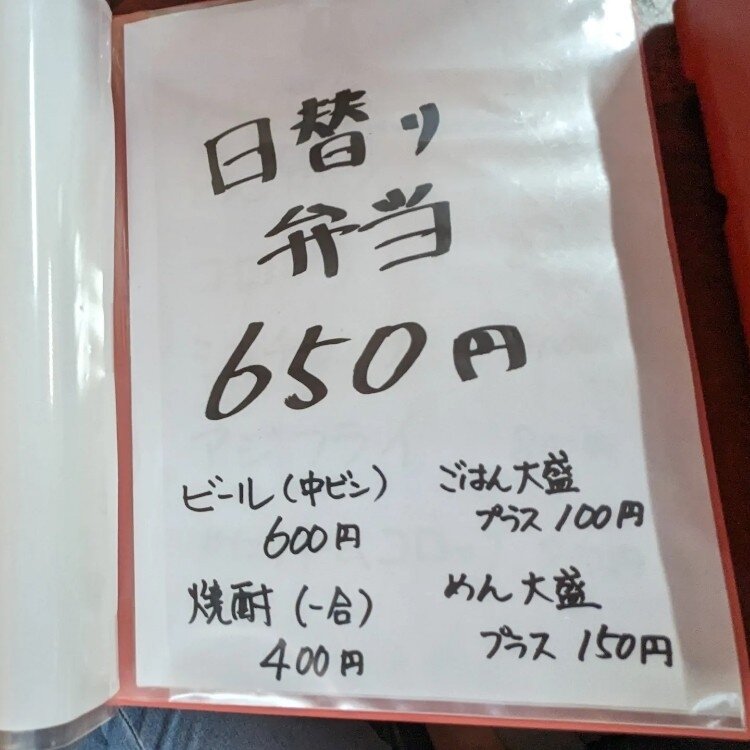 日替り
弁当
650円
ビール(中ビン)
600円
焼酎(一合)
400円
ごはん大盛
プラス100円
めん大盛
プラス150円